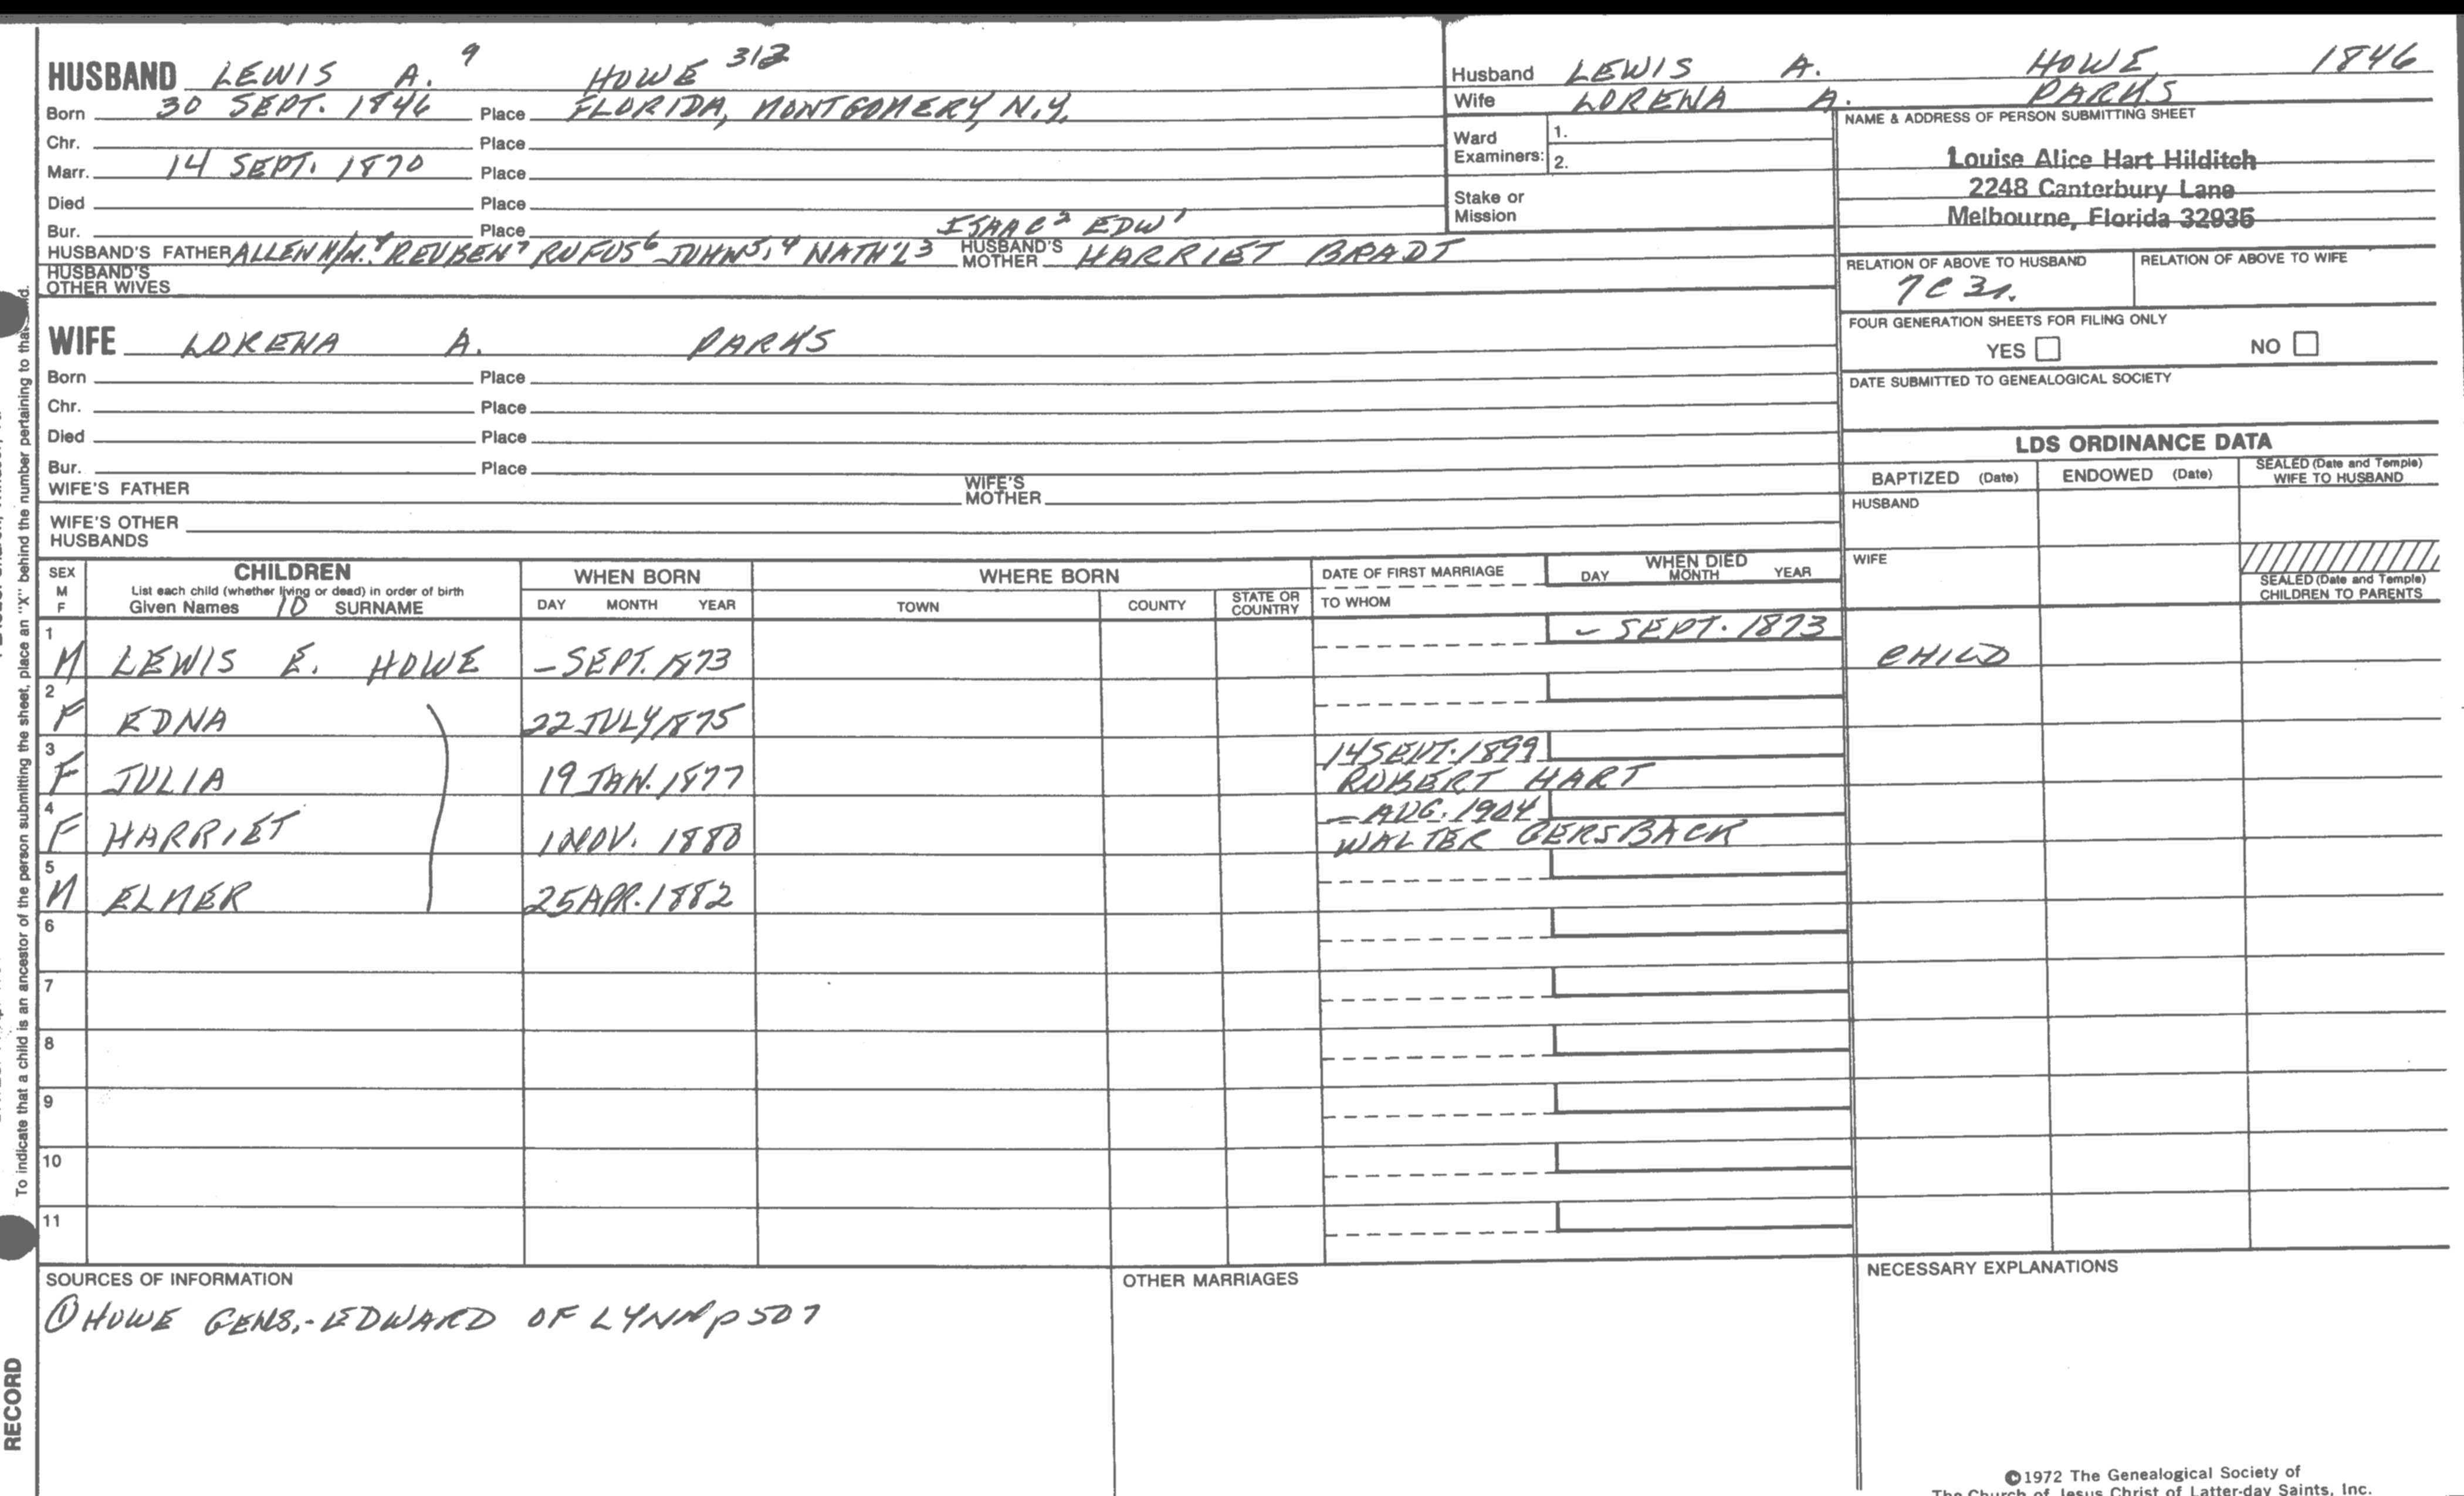 HUSBAND LEWIS A. 9 HOWE 313
Born 30 SEPT. 1846 Place FLORIDA, MONTGOMERY, N.Y.
Chr. Place
Marr. 14 SEPT. 1870 Place
Died Place
Bur. Place ISAAC 2 EDW 1
HUSBAND'S FATHER REUBEN 7 RUFUS 6 JOHN 5, 4 NATH'L 3 HUSBAND'S MOTHER HARRIET BRADT
HUSBAND'S OTHER WIVES
Husband LEWIS A. HOWE 1846
Wife LORENA A. PARKS
Ward Examiners: 1.
2.
Stake or Mission
NAME & ADDRESS OF PERSON SUBMITTING SHEET
Louise Alice Hart Hilditch
2248 Canterbury Lane
Melbourne, Florida 32935
RELATION OF ABOVE TO HUSBAND RELATION OF ABOVE TO WIFE
7C 3r.
FOUR GENERATION SHEETS FOR FILING ONLY
YES NO
DATE SUBMITTED TO GENEALOGICAL SOCIETY
WIFE LORENA A. PARKS
Born Place
Chr. Place
Died Place
Bur. Place
WIFE'S FATHER WIFE'S MOTHER
WIFE'S OTHER HUSBANDS
LDS ORDINANCE DATA
BAPTIZED (Date) ENDOWED (Date) SEALED (Date and Temple) WIFE TO HUSBAND
HUSBAND
WIFE
SEALED (Date and Temple) CHILDREN TO PARENTS
SEX M F CHILDREN WHEN BORN WHERE BORN DATE OF FIRST MARRIAGE WHEN DIED
List each child (whether living or dead) in order of birth
Given Names 10 SURNAME DAY MONTH YEAR TOWN COUNTY STATE OR COUNTRY TO WHOM DAY MONTH YEAR
1 - SEPT. 1873
M LEWIS E. HOWE - SEPT. 1873 CHILD
2
F EDNA 22 JULY 1875
3 14 SEPT. 1899
F JULIA 19 JAN. 1877 ROBERT HART
4 - AUG. 1904
F HARRIET 1 NOV. 1880 WALTER GERSBACK
5
M ELMER 25 APR. 1882
6
7
8
9
10
11
SOURCES OF INFORMATION OTHER MARRIAGES NECESSARY EXPLANATIONS
① HOWE GENS.-EDWARD OF LYNN p 507
©1972 The Genealogical Society of
The Church of Jesus Christ of Latter-day Saints, Inc.
To indicate that a child is an ancestor of the person submitting the sheet, place an "X" behind the number pertaining to that child.
RECORD